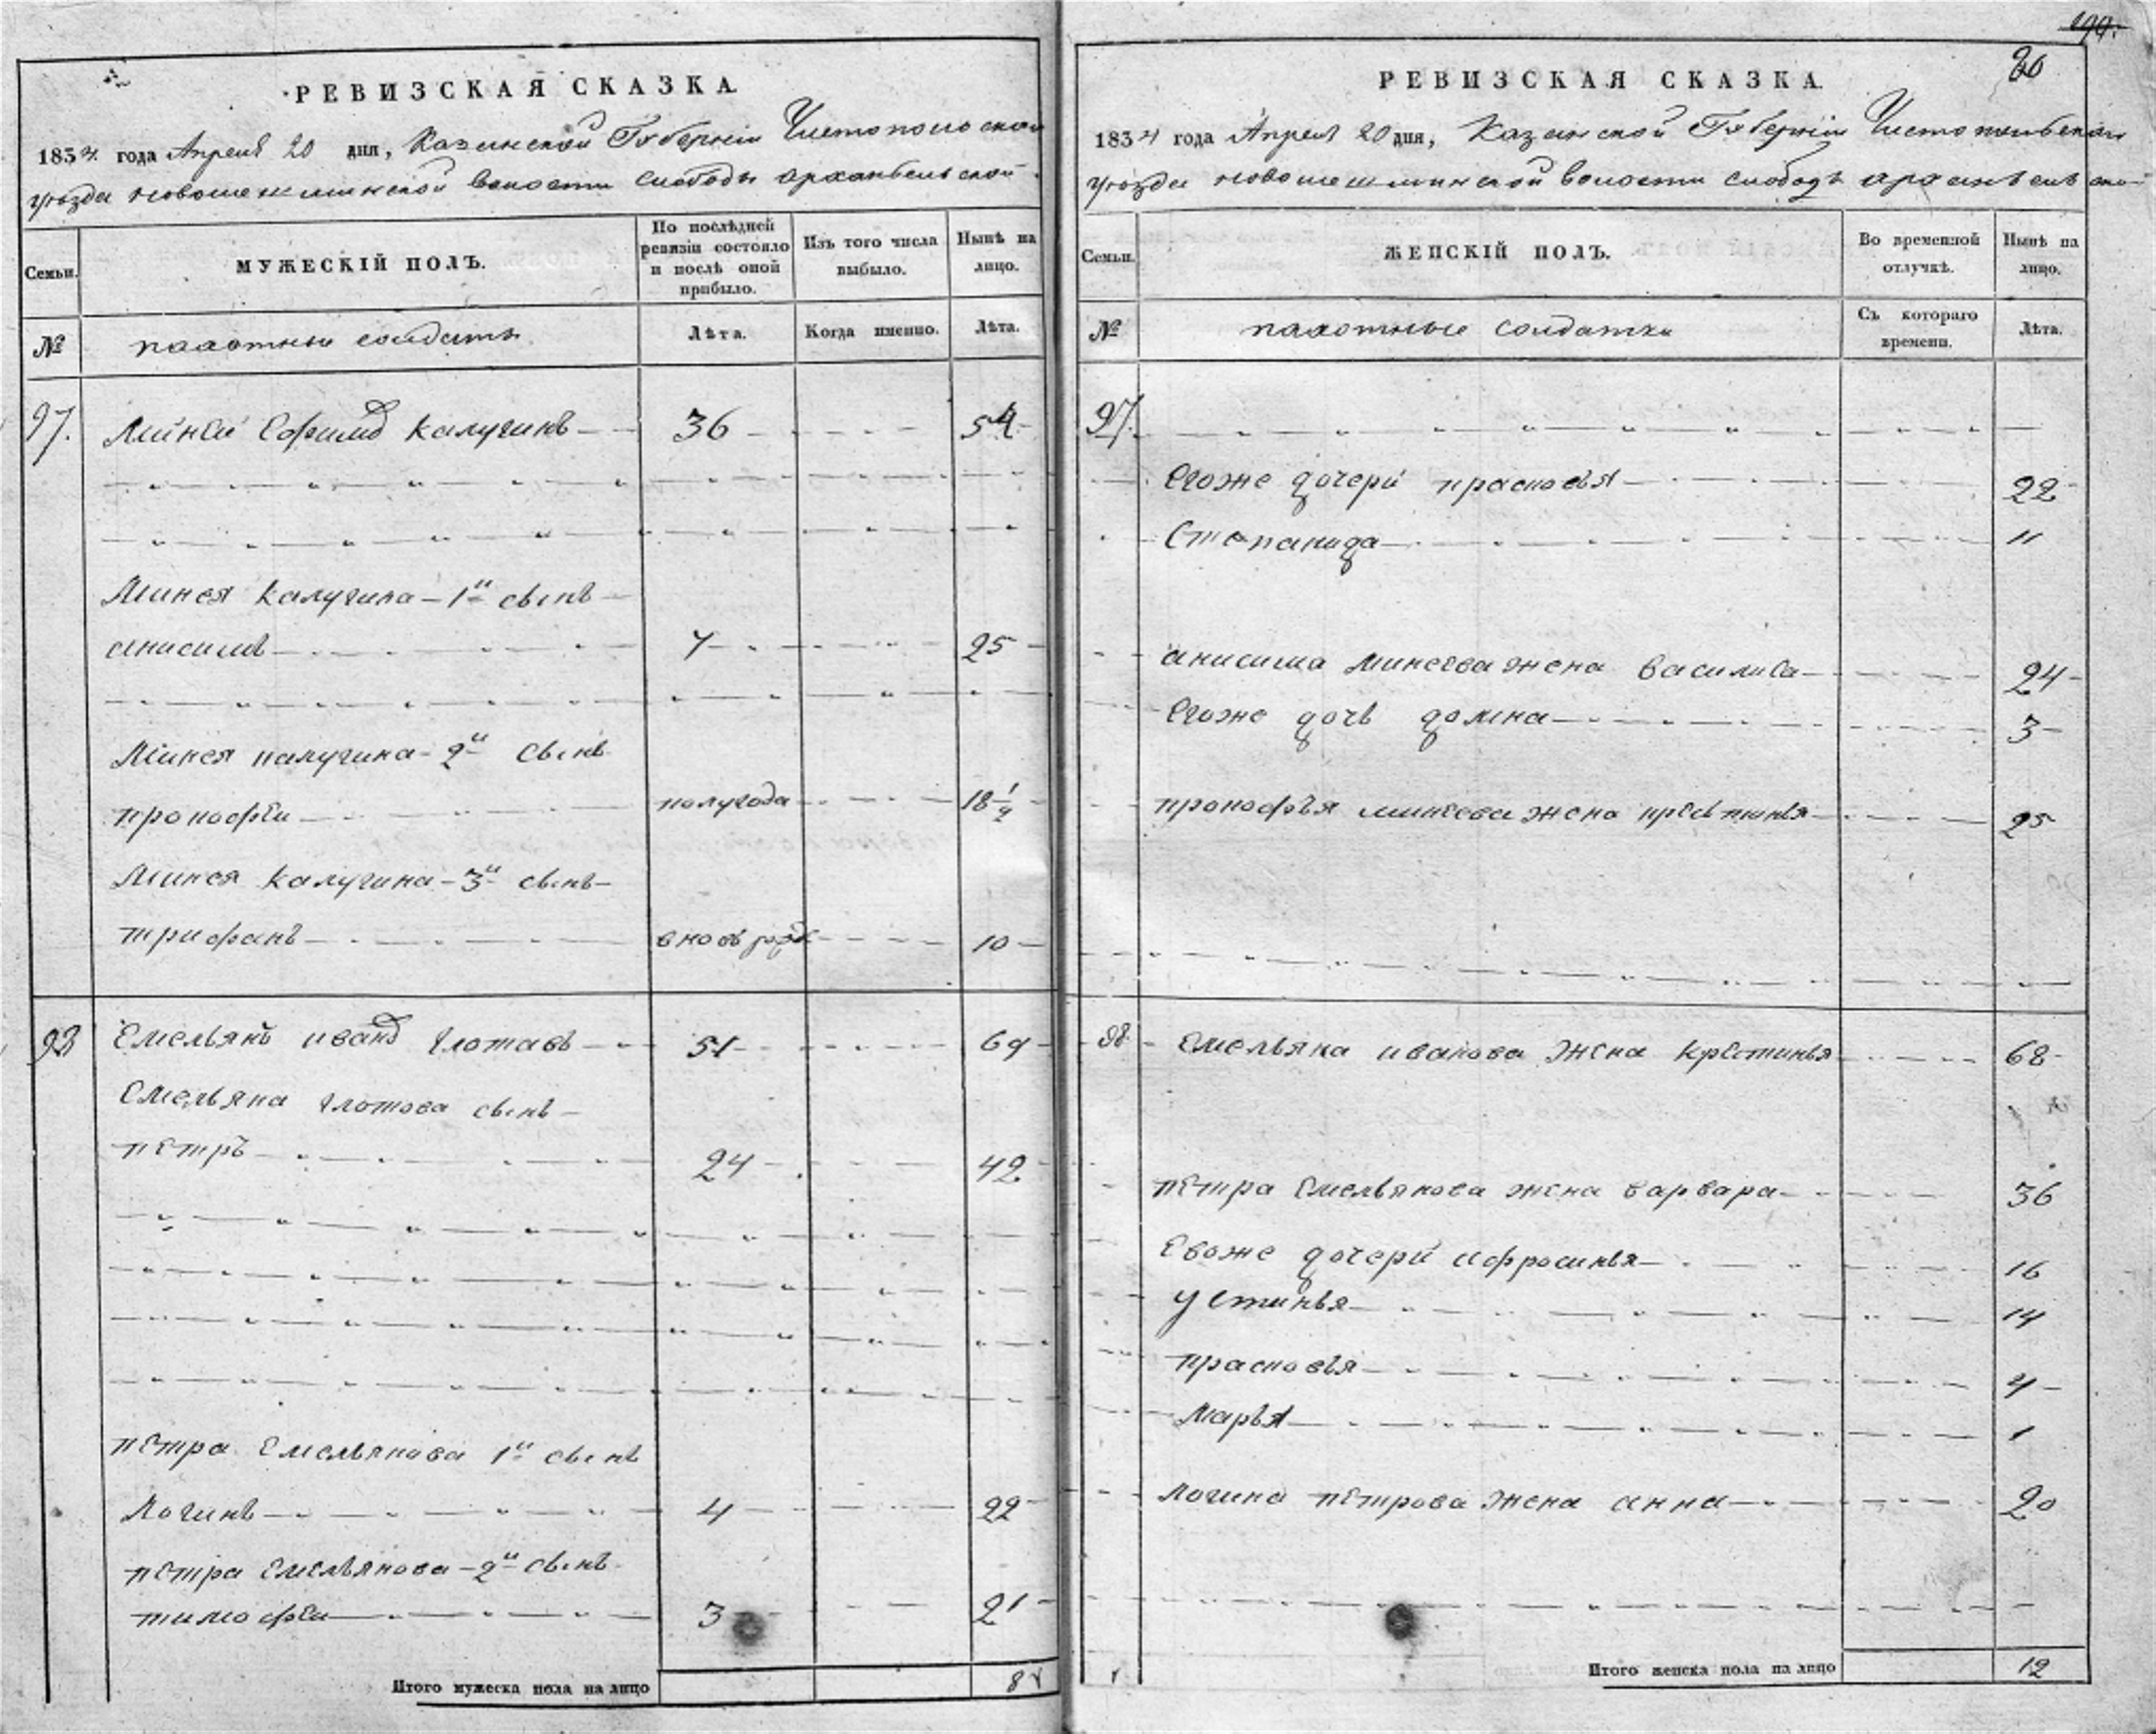 РЕВИЗСКАЯ СКАЗКА.
1834 года Апреля 20 дня, Казанской Губерніи Чистопольской
уезда новошешминской волости слободы архангельской
Семьи.
МУЖЕСКІЙ ПОЛЪ.
По послѣдней ревизіи состояло и послѣ оной прибыло.
Изъ того числа выбыло.
Нынѣ на лицо.
№
пахотные солдаты
Лѣта.
Когда именно.
Лѣта.
97. Миней Ефимов Калугинъ 36 54
Минея Калугина 1й сынъ
анисимъ 7 25
Минея калугина 2й сынъ
прокофей полугода 18 1/2
Минея Калугина 3й сынъ
трифанъ вновь рожд 10
98 Емельянъ иванов глотовъ 51 69
Емельяна глотова сынъ
петръ 24 42
петра Емельянова 1й сынъ
Логинъ 4 22
петра Емельянова 2й сынъ
тимофей 3 21
Итого мужеска пола на лицо 8
199.
20
РЕВИЗСКАЯ СКАЗКА.
1834 года Апреля 20 дня, Казанской Губерніи Чистопольской
уезда новошешминской волости слободы архангельской
Семьи.
ЖЕНСКІЙ ПОЛЪ.
Во временной отлучкѣ.
Нынѣ на лицо.
№
пахотные солдатки
Съ котораго времени.
Лѣта.
97.
Егоже дочери прасковья 22
Степанида 11
анисима минеева жена василиса 24
Егоже дочь домна 3
прокофья минеева жена крестинья 25
98. Емельяна иванова жена крестинья 68
петра Емельянова жена варвара 36
Евоже дочери афросинья 16
устинья 14
прасковья 4
Марья 1
логина петрова жена анна 20
Итого женска пола на лицо 12